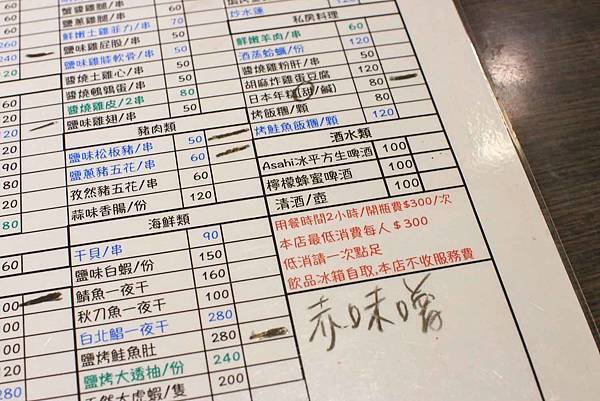 醬蔥雞腿/串 60
鮮嫩土雞菲力/串 70
鹽味雞屁股/串 50
鹽味雞膝軟骨/串 50
醬燒土雞心/串 50
醬燒鵪鶉蛋/串 50
醬燒雞皮/2串 80
鹽味雞翅/串
豬肉類
鹽味松板豬/串 50
鹽蔥豬五花/串 60
孜然豬五花/串 60
蒜味香腸/份 120
海鮮類
干貝/串 90
鹽味白蝦/份 150
鯖魚一夜干 160
秋刀魚一夜干 100
白北鯧一夜干 280
鹽烤鮭魚肚 280
鹽烤大透抽/份 240
天然大虎蝦/隻 200
炒水蓮
私房料理
鮮嫩羊肉/串 60
酒蒸蛤蠣/份 120
醬燒雞粉肝/串 60
胡麻炸雞蛋豆腐 80
日本年糕(甜/鹹) 80
烤飯糰/顆 80
烤鮭魚飯糰/顆 120
酒水類
Asahi冰平方生啤酒 100
檸檬蜂蜜啤酒 100
清酒/壺 100
用餐時間2小時/開瓶費$300/次
本店最低消費每人$300
低消請一次點足
飲品冰箱自取,本店不收服務費
赤味噌